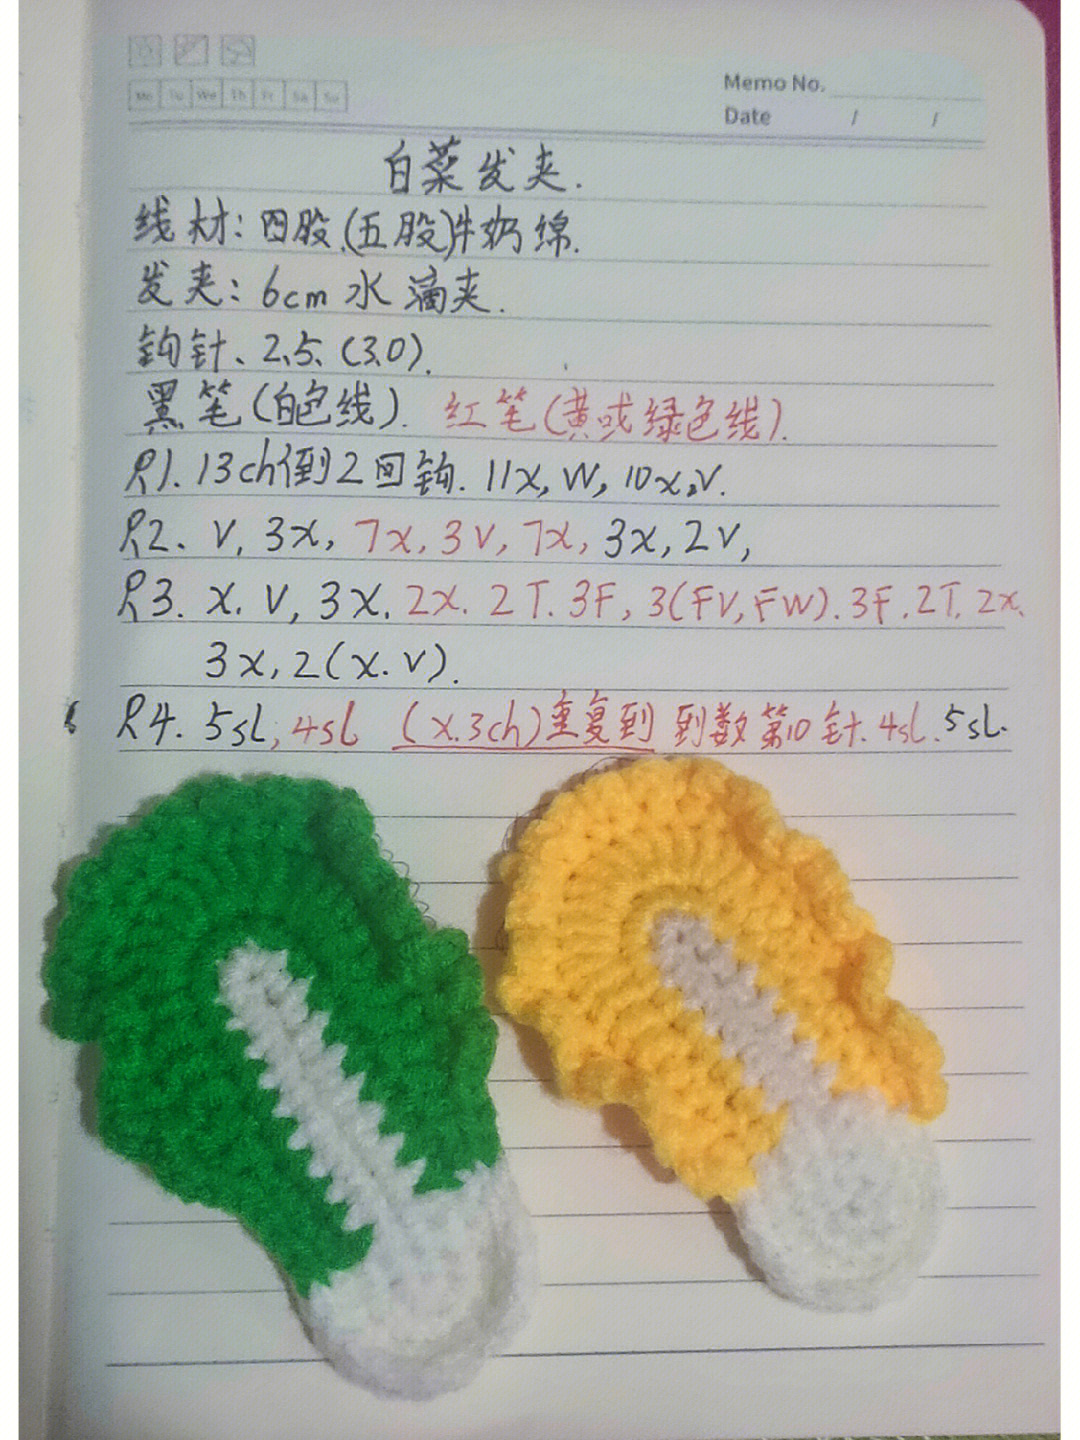 Mo Tu We Th Fr Sa Su
Memo No.
Date / /
白菜发夹.
线材:四股.(五股)牛奶绵.
发夹:6cm 水滴夹.
钩针、2.5、(3.0).
黑笔(白色线). 红笔(黄或绿色线).
R1. 13ch倒2回钩. 11x, W, 10x, V.
R2、V, 3x, 7x, 3V, 7x, 3x, 2V,
R3. X. V, 3X. 2X. 2T. 3F, 3(FV, FW). 3F. 2T. 2x.
3x, 2(x.v).
R4. 5sl, 4sl (x.3ch)重复到 到数第10针. 4sl. 5sl.